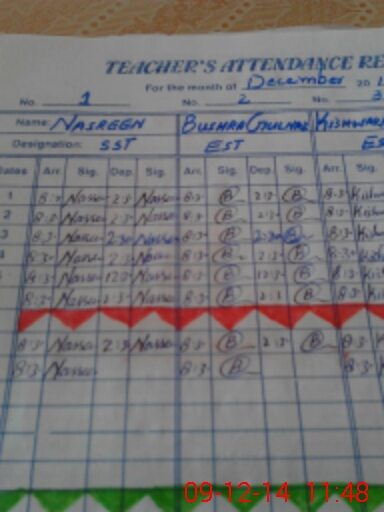 TEACHER'S ATTENDANCE RE
For the month of December 20
No. 1 No. 2 No. 3
Name: NASREEN BUSHRA GULNAZ KISHWAR
Designation: SST EST ES
Dates Arr. Sig. Dep. Sig. Arr. Sig. Dep. Sig. Arr. Sig.
1 8:3 Nasre 2:3 Nasre 8:3 B 2:3 B 8:3
2 8:3 Nasre 2:3 Nasre 8:3 B 2:3 B 8:3
3 8:3 Nasre 2:3 Nasre 8:3 B 2:3 B 8:3
4 8:3 Nasre 2:3 Nasre 8:3 B 2:3 B 8:3
8:3 Nasre 12:3 Nasre 8:3 B 12:3 B 8:3
8:3 Nasre 2:3 Nasre 8:3 B 2:3 B 8:3
8:3 Nasre 2:3 Nasre 8:3 B 2:3 B 8:3
8:3 Nasre 8:3 B 8:3
09-12-14 11:48